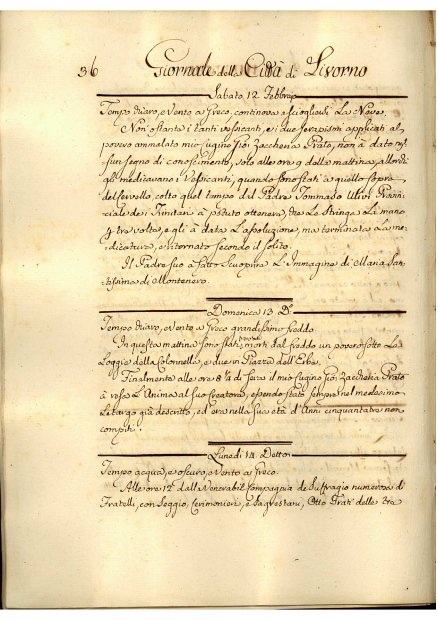 36 Giornale della Città di Livorno
Sabato 12 Febbrajo
Tempo chiaro, e Vento a Greco, continova a sciogliersi La Neve.
Non' ostanti i tanti vessicanti, e i due serviziali applicati al
povero ammalato mio Cugino Gio: Zaccheria Prato, non à dato nes-
sun segno di conoscimento, solo alle ore 9 della mattina, allorchè
gli medicavano i Vessicanti, quando sono stati a quello sopra
del cervello, colto quel tempo dal Padre Tommaso Provin-
ciale de Trinitari à potuto ottenere, che Le Stringa La mano
tre volte, e gli à data L'assoluzione, ma terminata La me-
dicatura, è ritornato secondo il solito.
Il Padre suo à fatto scuoprire L'Immagine di Maria San-
tissima di Montenero.
Domenica 13 Do.
Tempo chiaro, e Vento a Greco grandissimo freddo.
In questa mattina sono stati trovati morti dal freddo un povero sotto La
Loggia della Colonnella, e due in Piazza dell'Erbe.
Finalmente alle ore 8 1/4 di sera il mio Cugino Gio: Zaccheria Prato
à reso L'Anima al suo Creatore, essendo stato sempre nel medesimo
Letargo già descritto, ed era nella sua età d'Anni cinquantatre non
compiti.
Lunedì 14 Detto
Tempo acqua, e oscuro, e Vento a Greco.
Alle ore 12 dalla Venerabil Compagnia del Suffragio numerosa di
Fratelli, con Seggio, Cerimonieri, e Sagrestani, Otto Frati delle tre